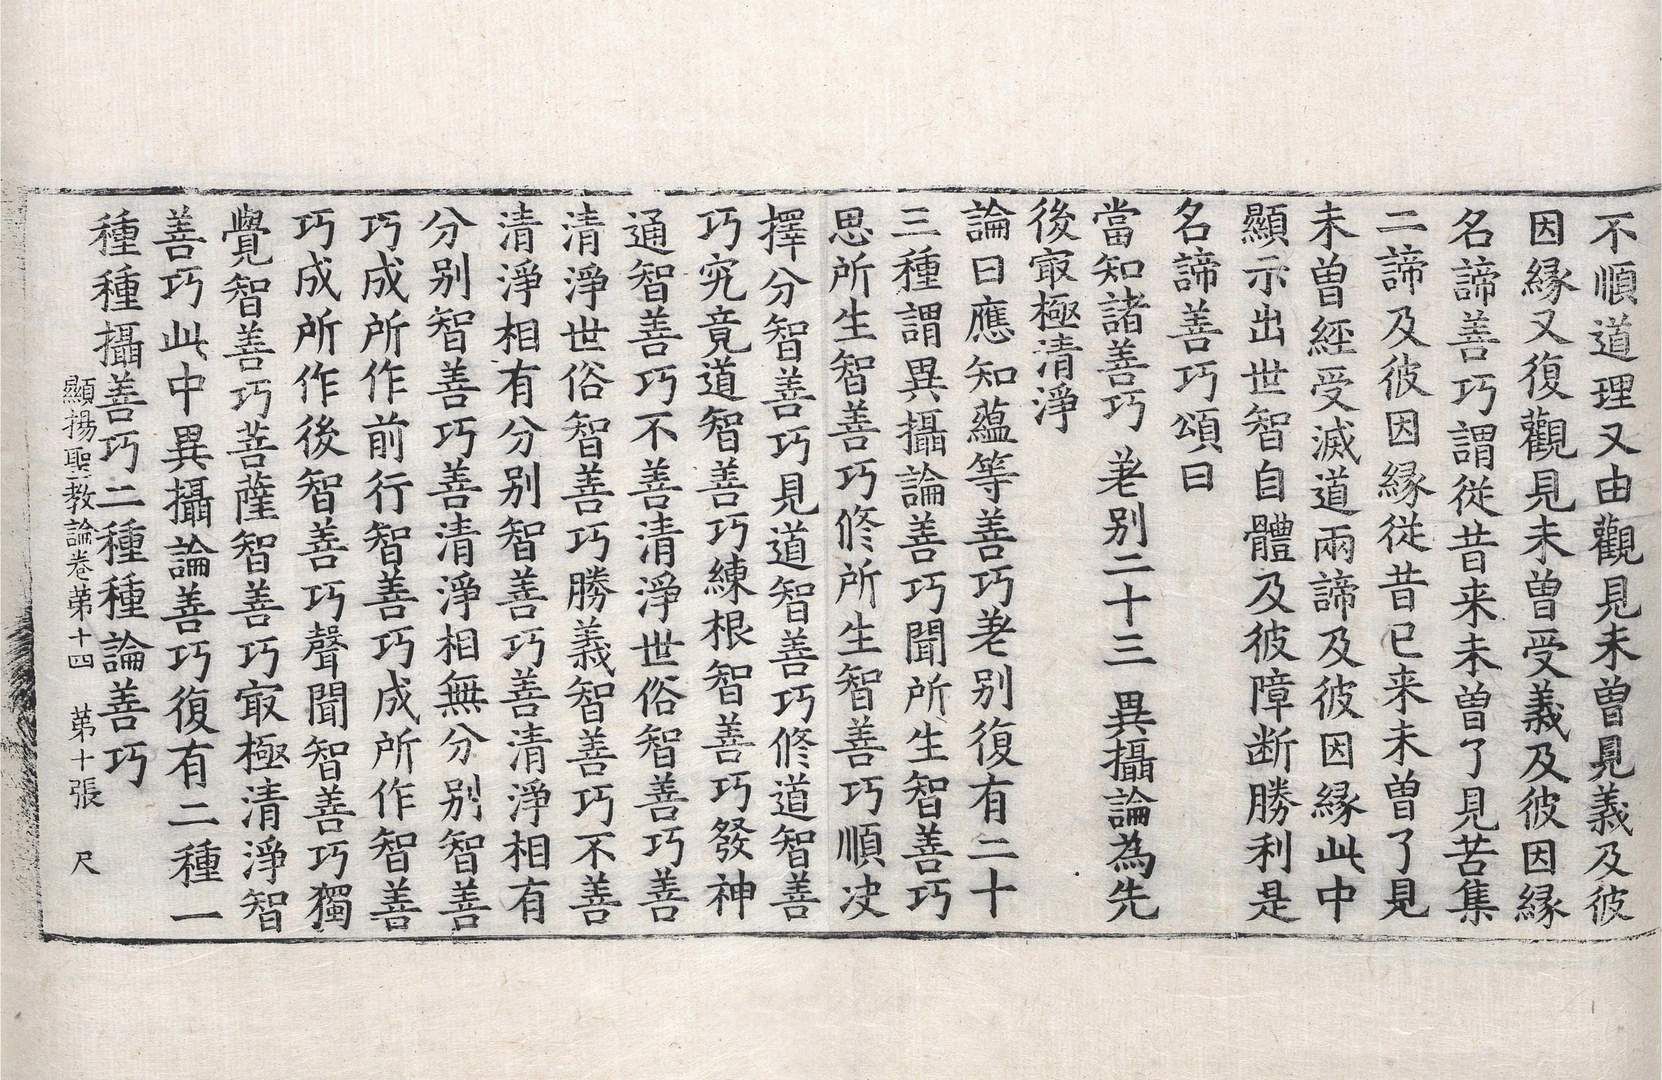 不順道理又由觀見未曽見義及彼
因縁又復觀見未曽受義及彼因縁
名諦善巧謂従昔来未曽了見苦集
二諦及彼因縁従昔已来未曽了見
未曽經受滅道兩諦及彼因縁此中
顯示出世智自體及彼障断勝利是
名諦善巧頌曰
當知諸善巧 差别二十三 異攝論為先
後㝡極清淨
論曰應知蘊等善巧差别復有二十
三種謂異攝論善巧聞所生智善巧
思所生智善巧修所生智善巧順決
擇分智善巧見道智善巧修道智善
巧究竟道智善巧練根智善巧發神
通智善巧不善清淨世俗智善巧善
清淨世俗智善巧勝義智善巧不善
清淨相有分别智善巧善清淨相有
分别智善巧善清淨相無分别智善
巧成所作前行智善巧成所作智善
巧成所作後智善巧聲聞智善巧獨
覺智善巧菩薩智善巧㝡極清淨智
善巧此中異攝論善巧復有二種一
種種攝善巧二種種論善巧
顯揚聖教論卷苐十四 苐十張 尺